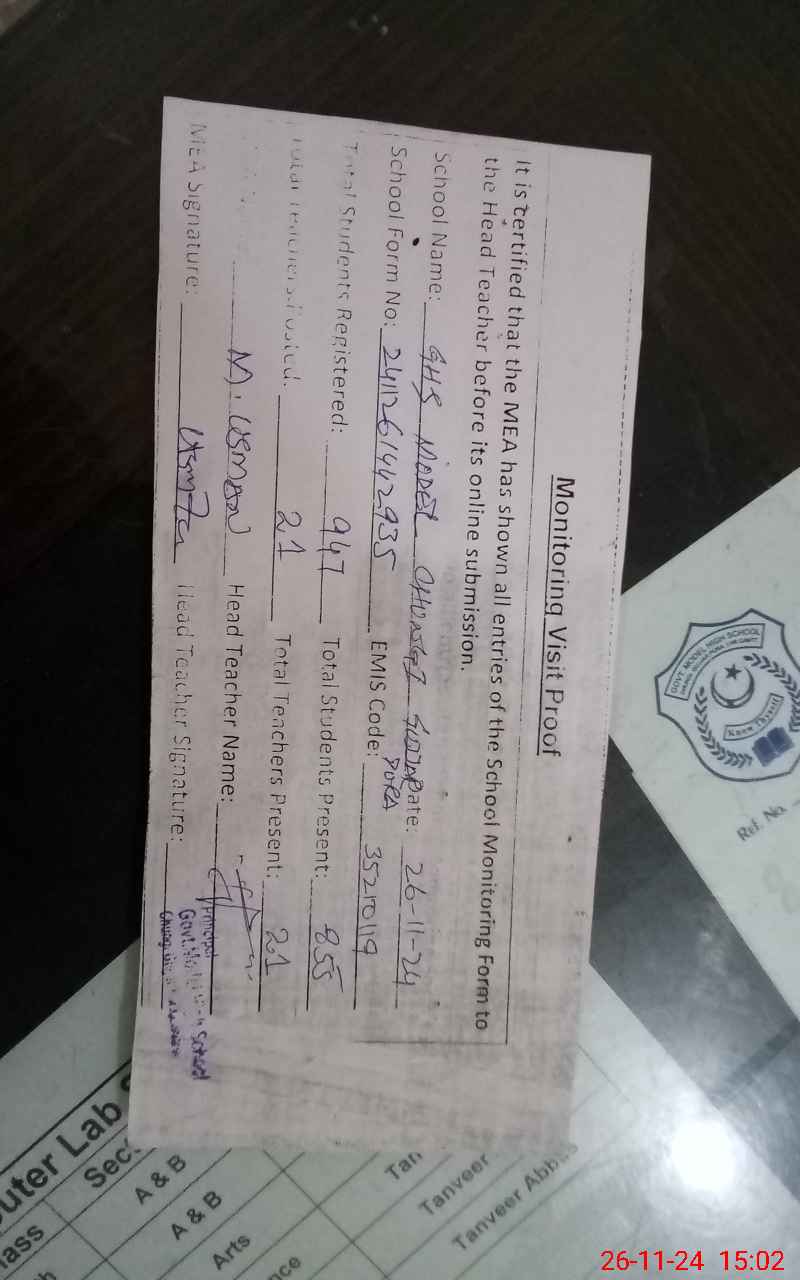 Monitoring Visit Proof
It is certified that the MEA has shown all entries of the School Monitoring Form to
the Head Teacher before its online submission.
School Name: GHS MODEL GUJJAR PURA Date: 26-11-24
School Form No: 2411261442935 EMIS Code: 35210119
Total Students Registered: 947 Total Students Present: 855
Total Teachers Posted: 21 Total Teachers Present: 21
M. Usman Head Teacher Name:
MEA Signature: Head Teacher Signature:
Principal
Govt. School
GOVT. MODEL HIGH SCHOOL
Ref. No.
uter Lab
lass Sec
A & B
A & B
Arts
nce
Tan
Tanveer
Tanveer Abbas
26-11-24 15:02